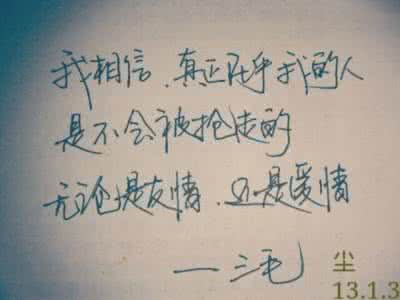 我相信、真正在乎我的人
是不会被抢走的
无论是友情、还是爱情
——三毛
尘
13.1.3